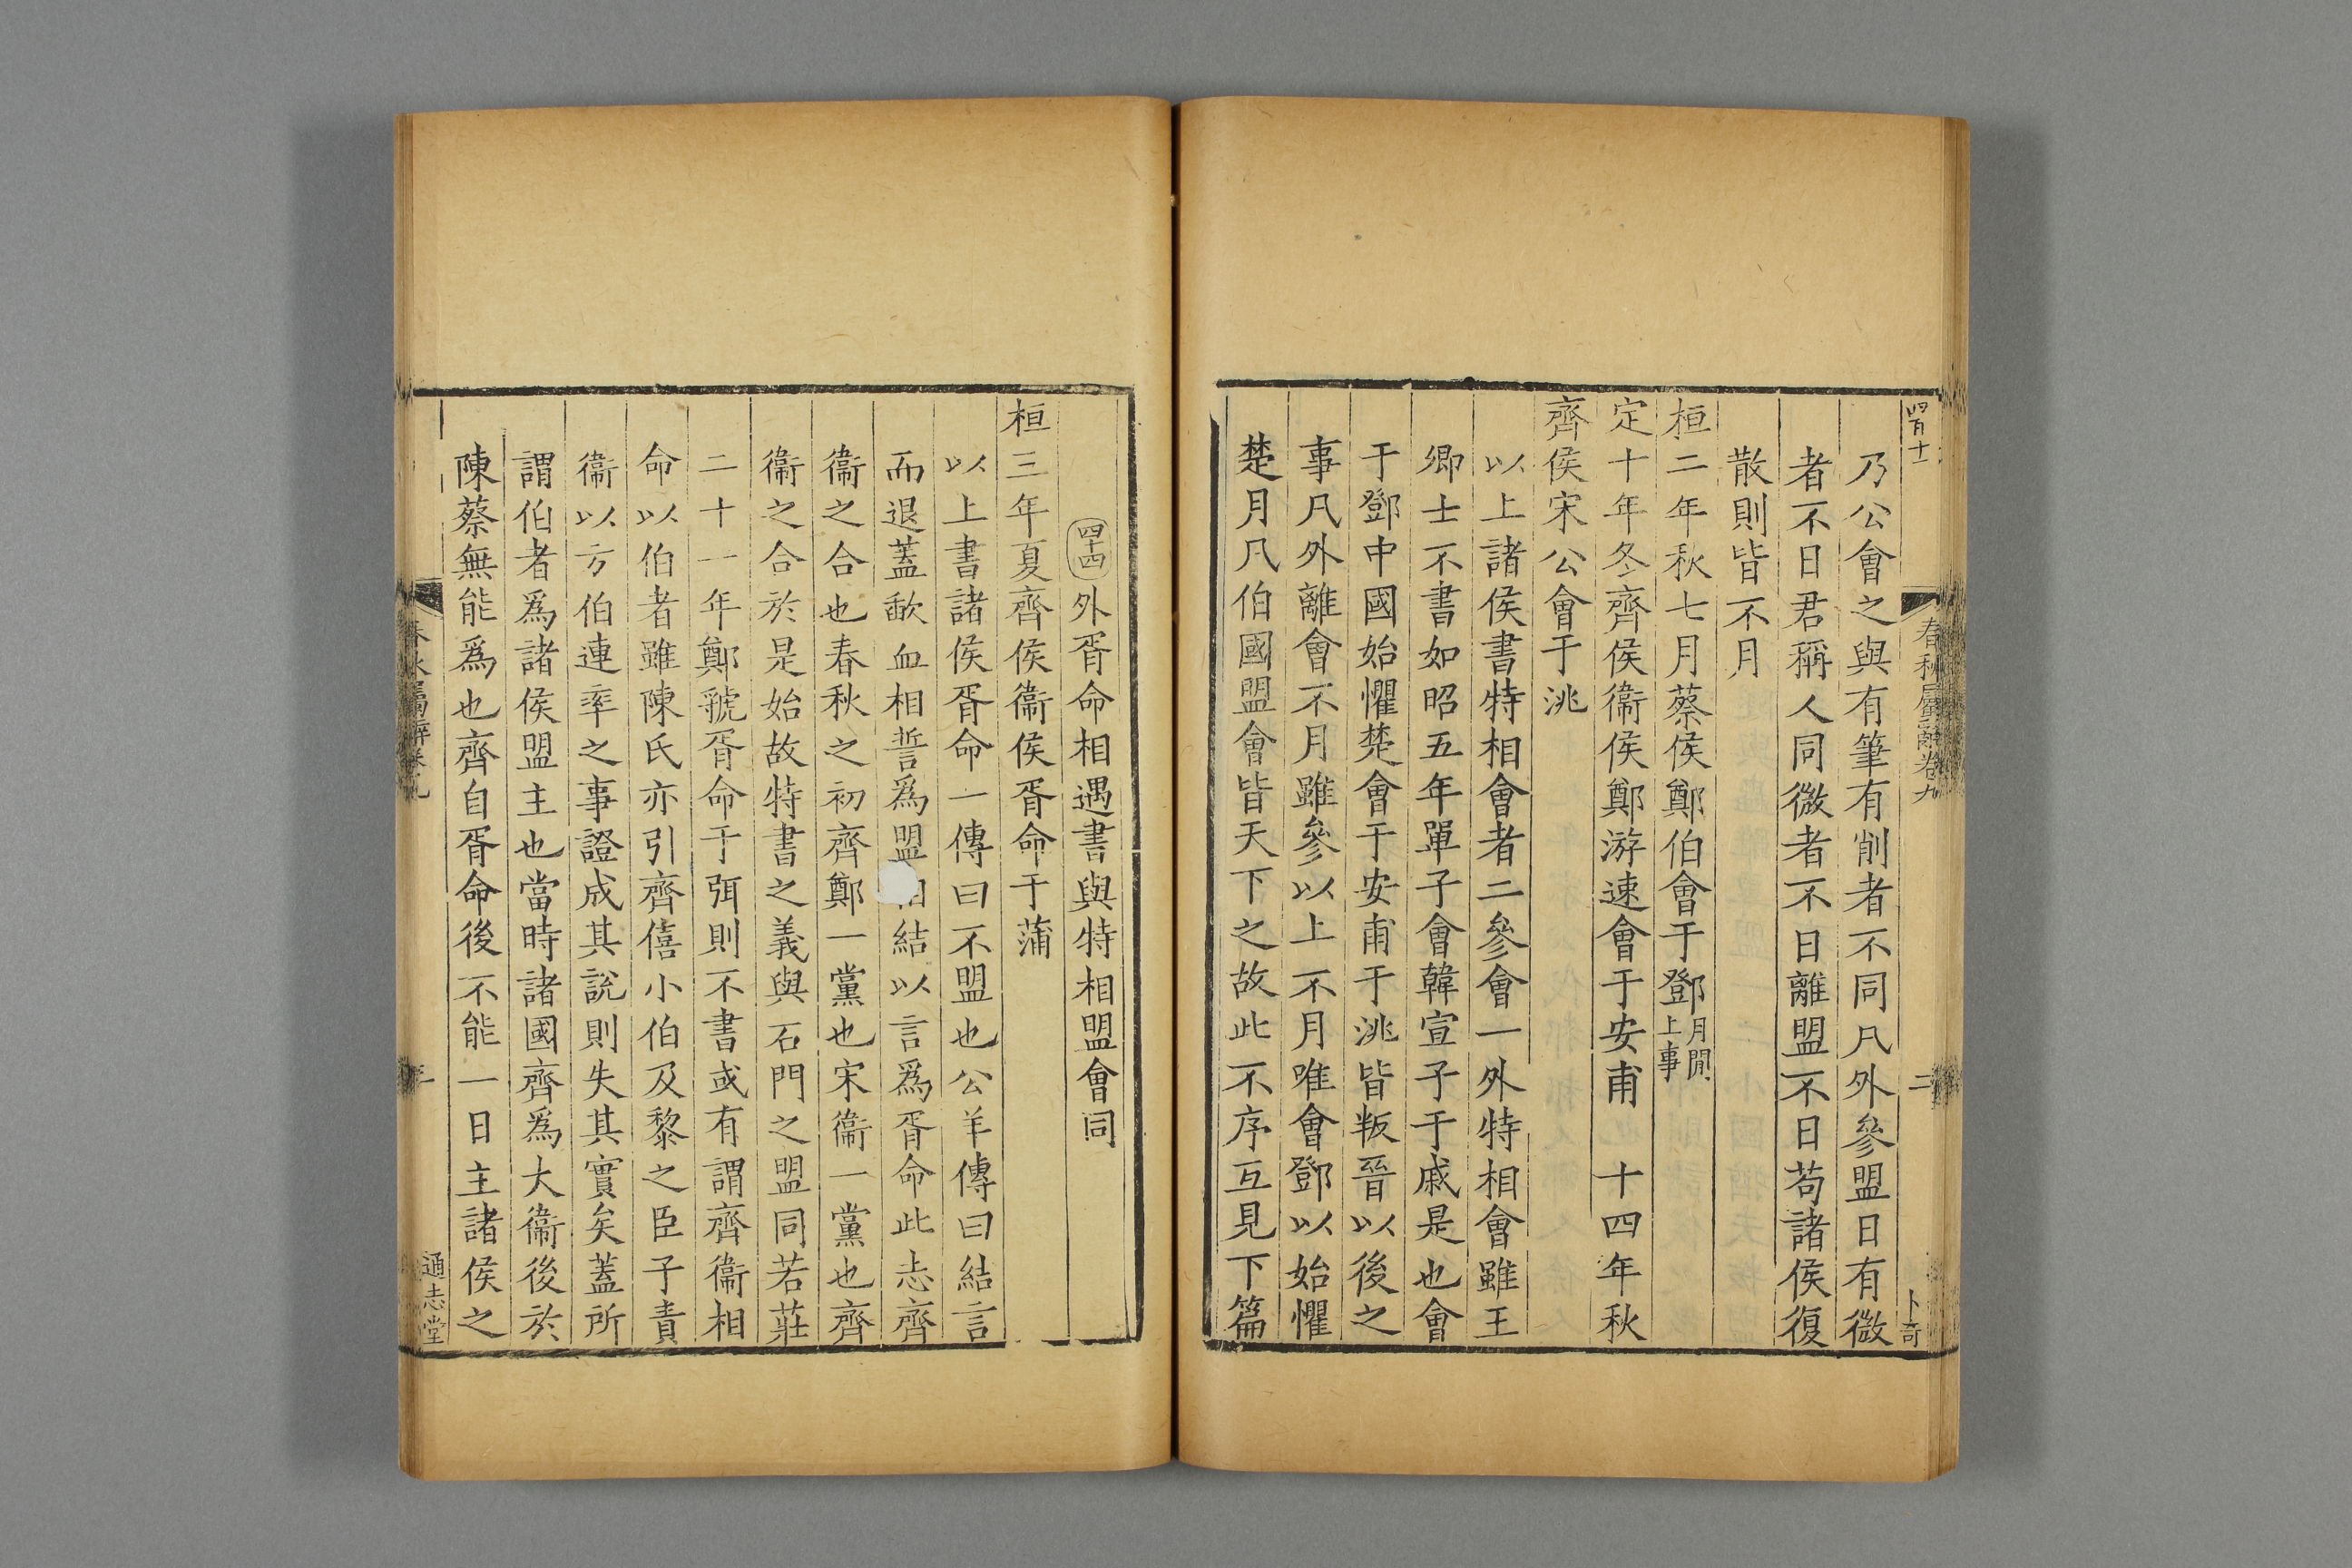 四百十一
春秋屬辭卷九
二
卜奇
乃公會之與有筆有削者不同凡外參盟日有微
者不日君稱人同微者不日離盟不日苟諸侯復
散則皆不月
桓二年秋七月蔡侯鄭伯會于鄧月閒上事
定十年冬齊侯衞侯鄭游速會于安甫 十四年秋
齊侯宋公會于洮
以上諸侯書特相會者二參會一外特相會雖王
卿士不書如昭五年單子會韓宣子于戚是也會
于鄧中國始懼楚會于安甫于洮皆叛晉以後之
事凡外離會不月雖參以上不月唯會鄧以始懼
楚月凡伯國盟會皆天下之故此不序互見下篇
四十四外胥命相遇書與特相盟會同
桓三年夏齊侯衞侯胥命于蒲
以上書諸侯胥命一傳曰不盟也公羊傳曰結言
而退蓋歃血相誓爲盟相結以言爲胥命此志齊
衞之合也春秋之初齊鄭一黨也宋衞一黨也齊
衞之合於是始故特書之義與石門之盟同若莊
二十一年鄭虢胥命于弭則不書或有謂齊衞相
命以伯者雖陳氏亦引齊僖小伯及黎之臣子責
衞以方伯連率之事證成其說則失其實矣蓋所
謂伯者爲諸侯盟主也當時諸國齊爲大衞後於
陳蔡無能爲也齊自胥命後不能一日主諸侯之
春秋屬辭卷九
通志堂